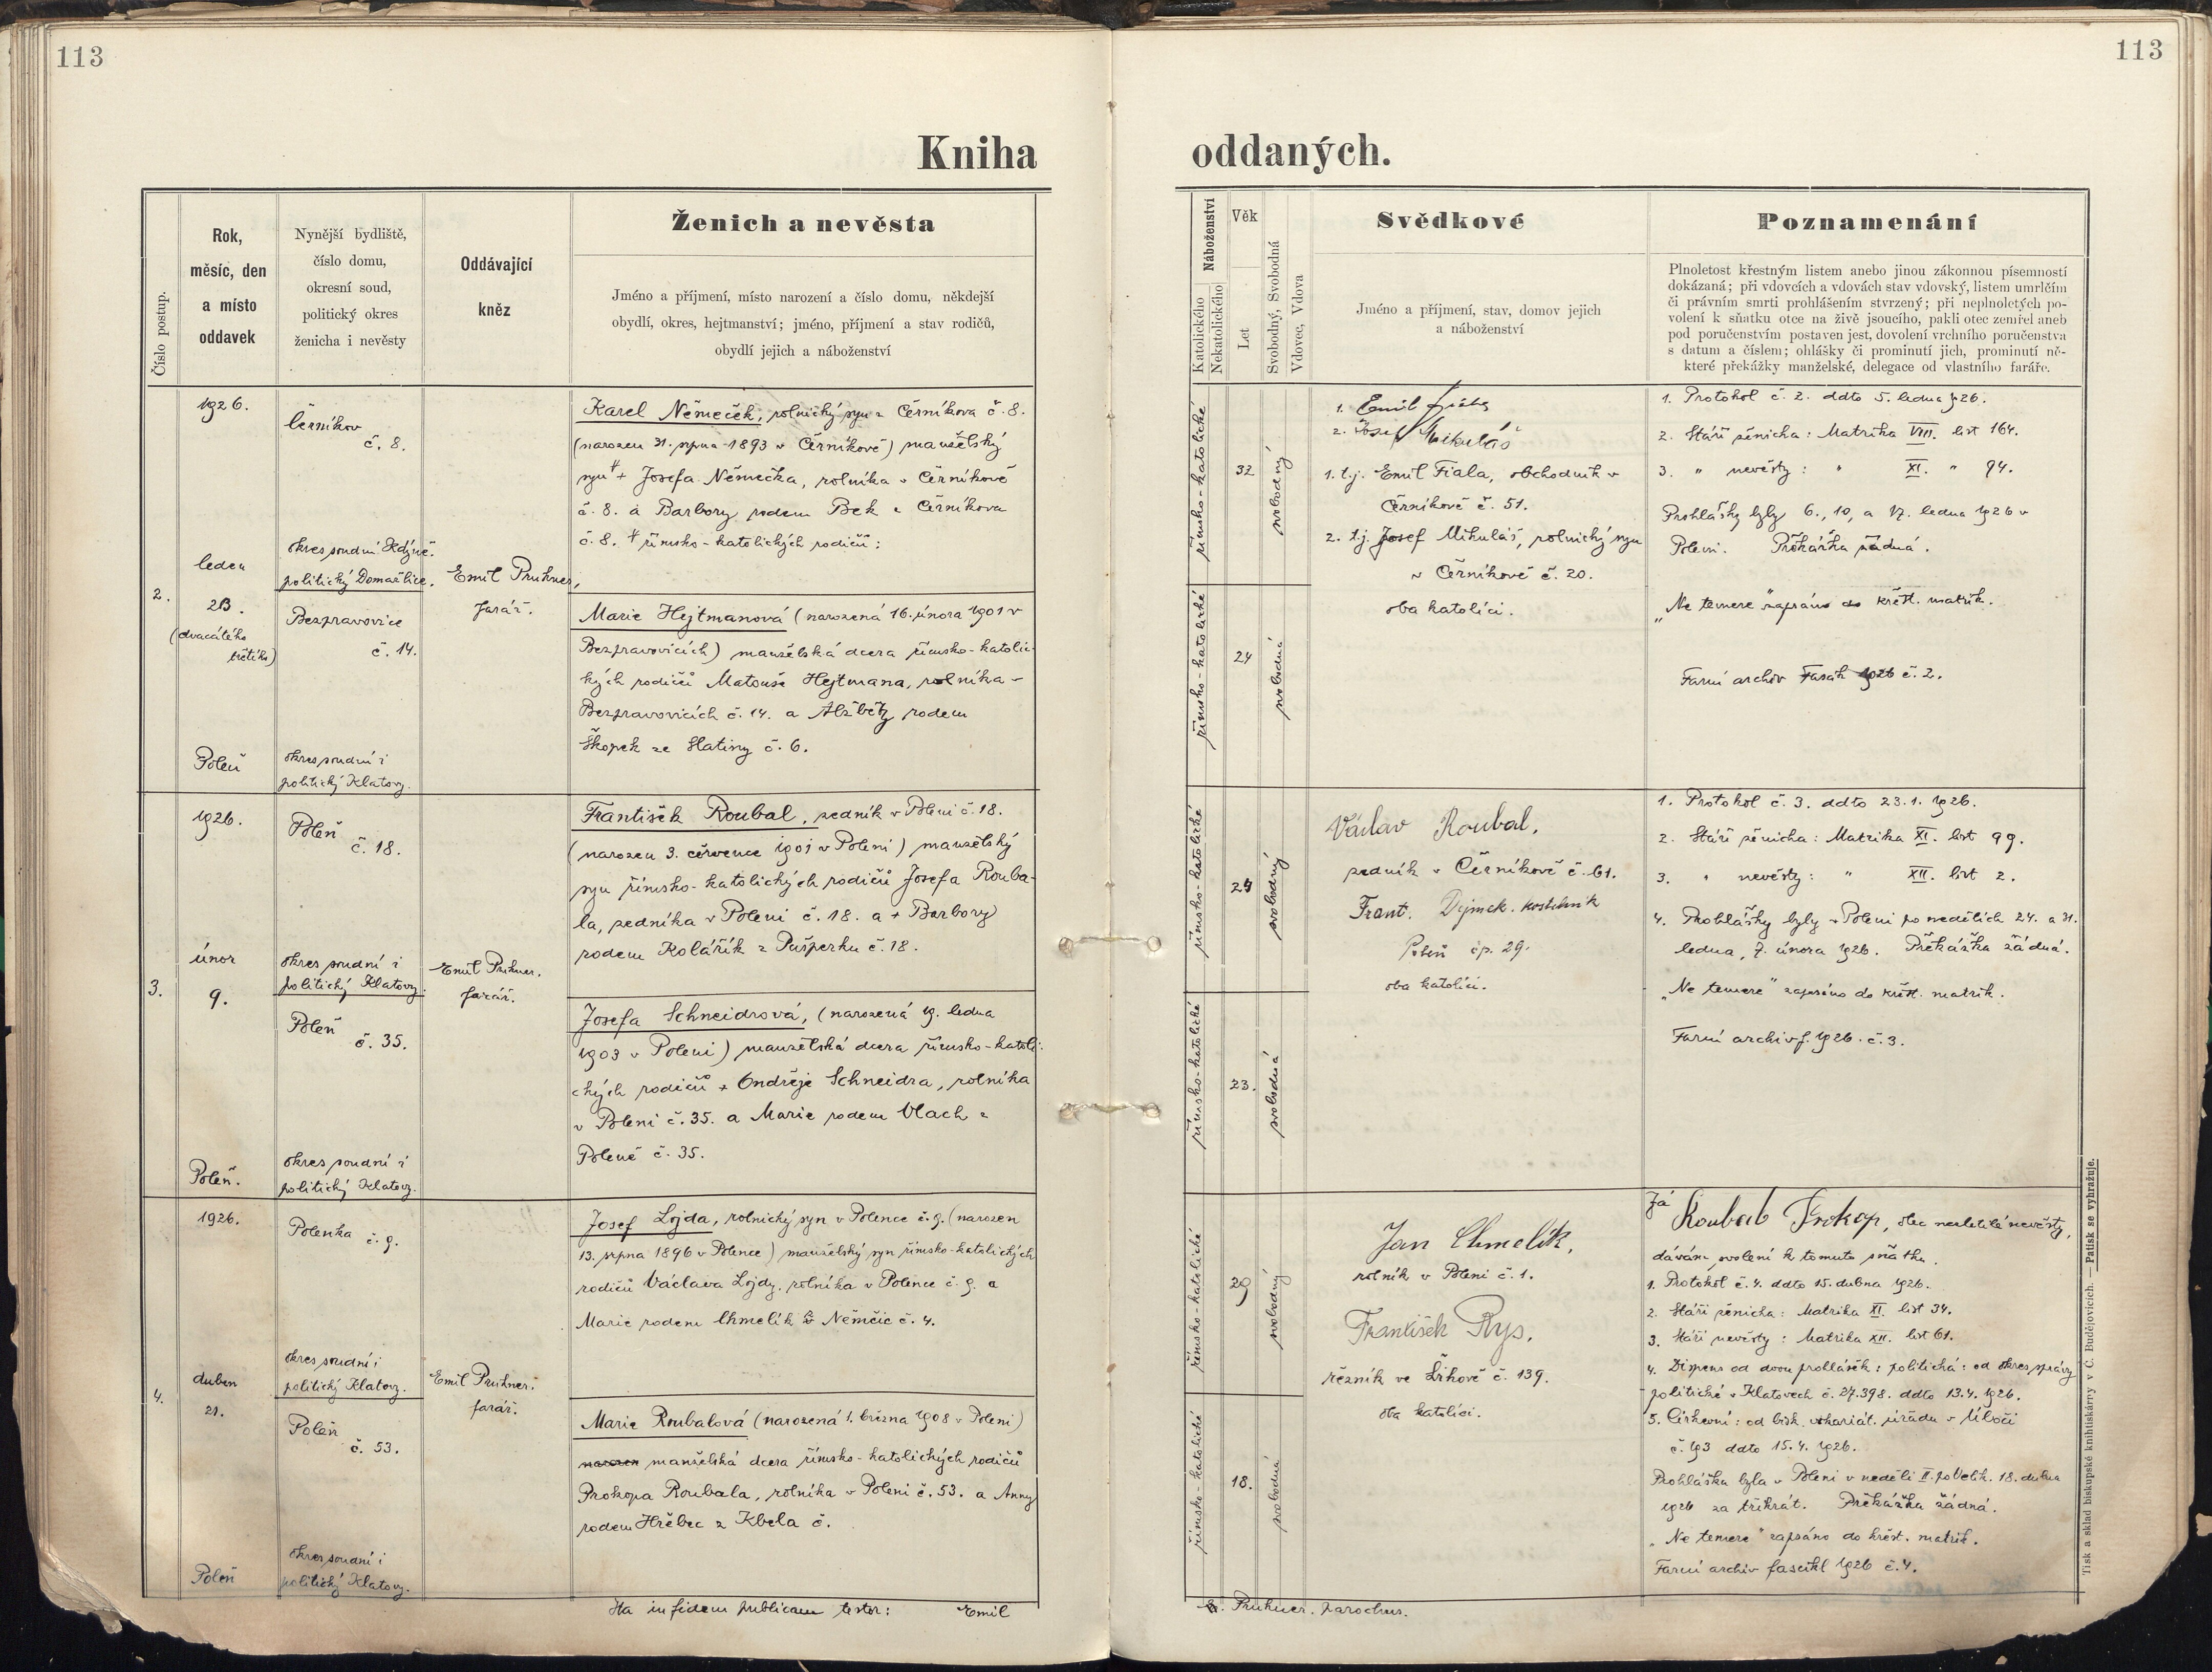 113
113
Kniha
oddaných.
Číslo postup.
Rok,
měsíc, den
a místo
oddavek
Nynější bydliště,
číslo domu,
okresní soud,
politický okres
ženicha i nevěsty
Oddávající
kněz
Ženich a nevěsta
Jméno a příjmení, místo narození a číslo domu, někdejší
obydlí, okres, hejtmanství; jméno, příjmení a stav rodičů,
obydlí jejich a náboženství
Náboženství
Katolického
Nekatolického
Věk
Let
Svobodný, Svobodná
Vdovec, Vdova
Svědkové
Jméno a příjmení, stav, domov jejich
a náboženství
Poznamenání
Plnoletost křestným listem anebo jinou zákonnou písemností
dokázaná; při vdovcích a vdovách stav vdovský, listem umrlčím
či právním smrti prohlášením stvrzený; při neplnoletých po-
volení k sňatku otce na živě jsoucího, pakli otec zemřel aneb
pod poručenstvím postaven jest, dovolení vrchního poručenstva
s datum a číslem; ohlášky či prominutí jich, prominutí ně-
které překážky manželské, delegace od vlastního faráře.
2.
1926.
leden
23.
(dvacátého
třetího)
Poleň
Černíkov
č. 8.
okres soudní Kdýně.
politický Domažlice.
Bezpravovice
č. 14.
okres soudní i
politický Klatovy.
Emil Pruhner,
farář.
Karel Němeček, rolnický syn z Černíkova č. 8.
(narozen 31. srpna 1893 v Černíkově) manželský
syn + Josefa Němečka, rolníka v Černíkově
č. 8. a Barbory rodem Bek z Černíkova
č. 8. římsko-katolických rodičů:
Marie Hejtmanová (narozená 16. února 1901 v
Bezpravovicích) manželská dcera římsko-katolic-
kých rodičů Matouše Hejtmana, rolníka v
Bezpravovicích č. 14. a Alžběty rodem
Škopek ze Slatiny č. 6.
římsko-katolické
32
svobodný
římsko-katolické
24
svobodná
1. Emil Fiala
2. Josef Mikuláš
1. t.j. Emil Fiala, obchodník v
Černíkově č. 51.
2. t.j. Josef Mikuláš, rolnický syn
v Černíkově č. 20.
oba katolíci.
1. Protokol č. 2. ddto 5. ledna 1926.
2. Stáří ženicha: Matrika VIII. list 164.
3. " nevěsty: " XI. " 94.
Prohlášky byly 6., 10, a 17. ledna 1926 v
Poleni. Překážka žádná.
"Ne temere" zapsáno do křtl. matrik.
Farní archiv Fasik 1926 č. 2.
3.
1926.
únor
9.
Poleň.
Poleň
č. 18.
okres soudní i
politický Klatovy.
Poleň
č. 35.
okres soudní i
politický Klatovy.
Emil Pruhner.
farář.
František Roubal, zedník v Poleni č. 18.
(narozen 3. července 1901 v Poleni) manželský
syn římsko-katolických rodičů Josefa Rouba-
la, zedníka v Poleni č. 18. a + Barbory
rodem Kolářík z Pušperku č. 18.
Josefa Schneidrová, (narozená 19. ledna
1903 v Poleni) manželská dcera římsko-katoli-
ckých rodičů + Ondřeje Schneidra, rolníka
v Poleni č. 35. a Marie rodem Vlach z
Poleně č. 35.
římsko-katolické
24
svobodný
římsko-katolické
23.
svobodná
Václav Roubal,
zedník v Černíkově č. 61.
Frant. Dejmek. kostelník
Poleň čp. 29.
oba katolíci.
1. Protokol č. 3. ddto 23. 1. 1926.
2. Stáří ženicha: Matrika XI. list 99.
3. " nevěsty: " XII. list 2.
4. Prohlášky byly v Poleni po nedělích 24. a 31.
ledna, 7. února 1926. Překážka žádná.
"Ne temere" zapsáno do křtl. matrik.
Farní archiv f. 1926. č. 3.
4.
1926.
duben
21.
Poleň
Polenka č. 9.
okres soudní i
politický Klatovy.
Poleň
č. 53.
okres soudní i
politický Klatovy.
Emil Pruhner.
farář.
Josef Lojda, rolnický syn v Polence č. 9. (narozen
13. srpna 1896 v Polence) manželský syn římsko-katolických
rodičů Václava Lojdy, rolníka v Polence č. 9. a
Marie rodem Chmelík z Němčic č. 4.
Marie Roubalová (narozená 1. března 1908 v Poleni)
narozen manželská dcera římsko-katolických rodičů
Prokopa Roubala, rolníka v Poleni č. 53. a Anny
rodem Hřebec z Kbela č.
římsko-katolické
29
svobodný
římsko-katolické
18.
svobodná
Jan Chmelík,
rolník v Poleni č. 1.
František Rys.
řezník ve Lhově č. 139.
oba katolíci.
Já Roubal Prokop, otec nezletilé nevěsty,
dávám svolení k tomuto sňatku.
1. Protokol č. 4. ddto 15. dubna 1926.
2. Stáří ženicha: Matrika XI. list 34.
3. Stáří nevěsty: Matrika XII. list 61.
4. Dispens od dvou prohlášek: politická: od okres. správy
politické v Klatovech č. 27.398. ddto 13.4. 1926.
5. Církevní: od bisk. vikariát. úřadu v Úboči
č. 193 ddto 15. 4. 1926.
Prohláška byla v Poleni v neděli II. po Velik. 18. dubna
1926 za třikrát. Překážka žádná.
"Ne temere" zapsáno do křest. matrik.
Farní archiv fascikl 1926 č. 4.
Ita in fidem publicam testor: Emil
Pruhner. parochus.
Tisk a sklad biskupské knihtiskárny v Č. Budějovicích. — Patisk se vyhražuje.